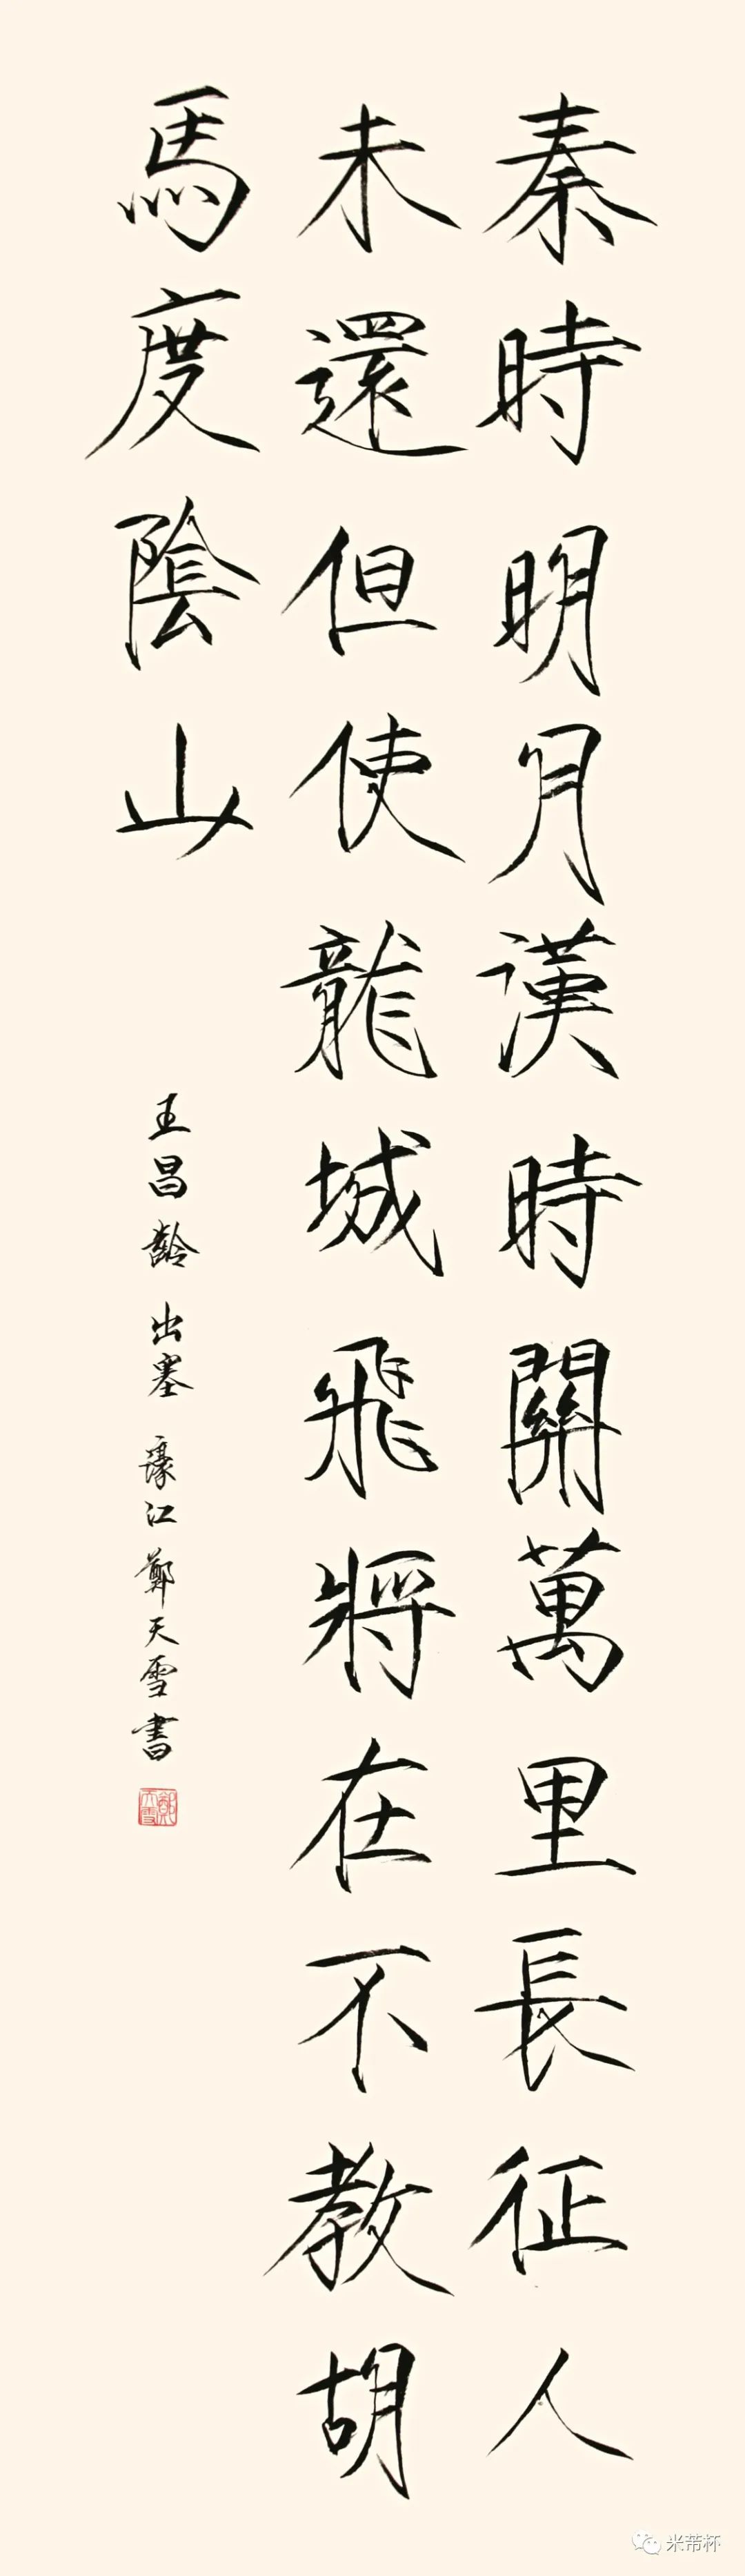 秦時明月漢時關萬里長征人
未還但使龍城飛將在不教胡
馬度陰山
王昌齡 出塞 濠江鄭天雪書
鄭天雪
米芾杯